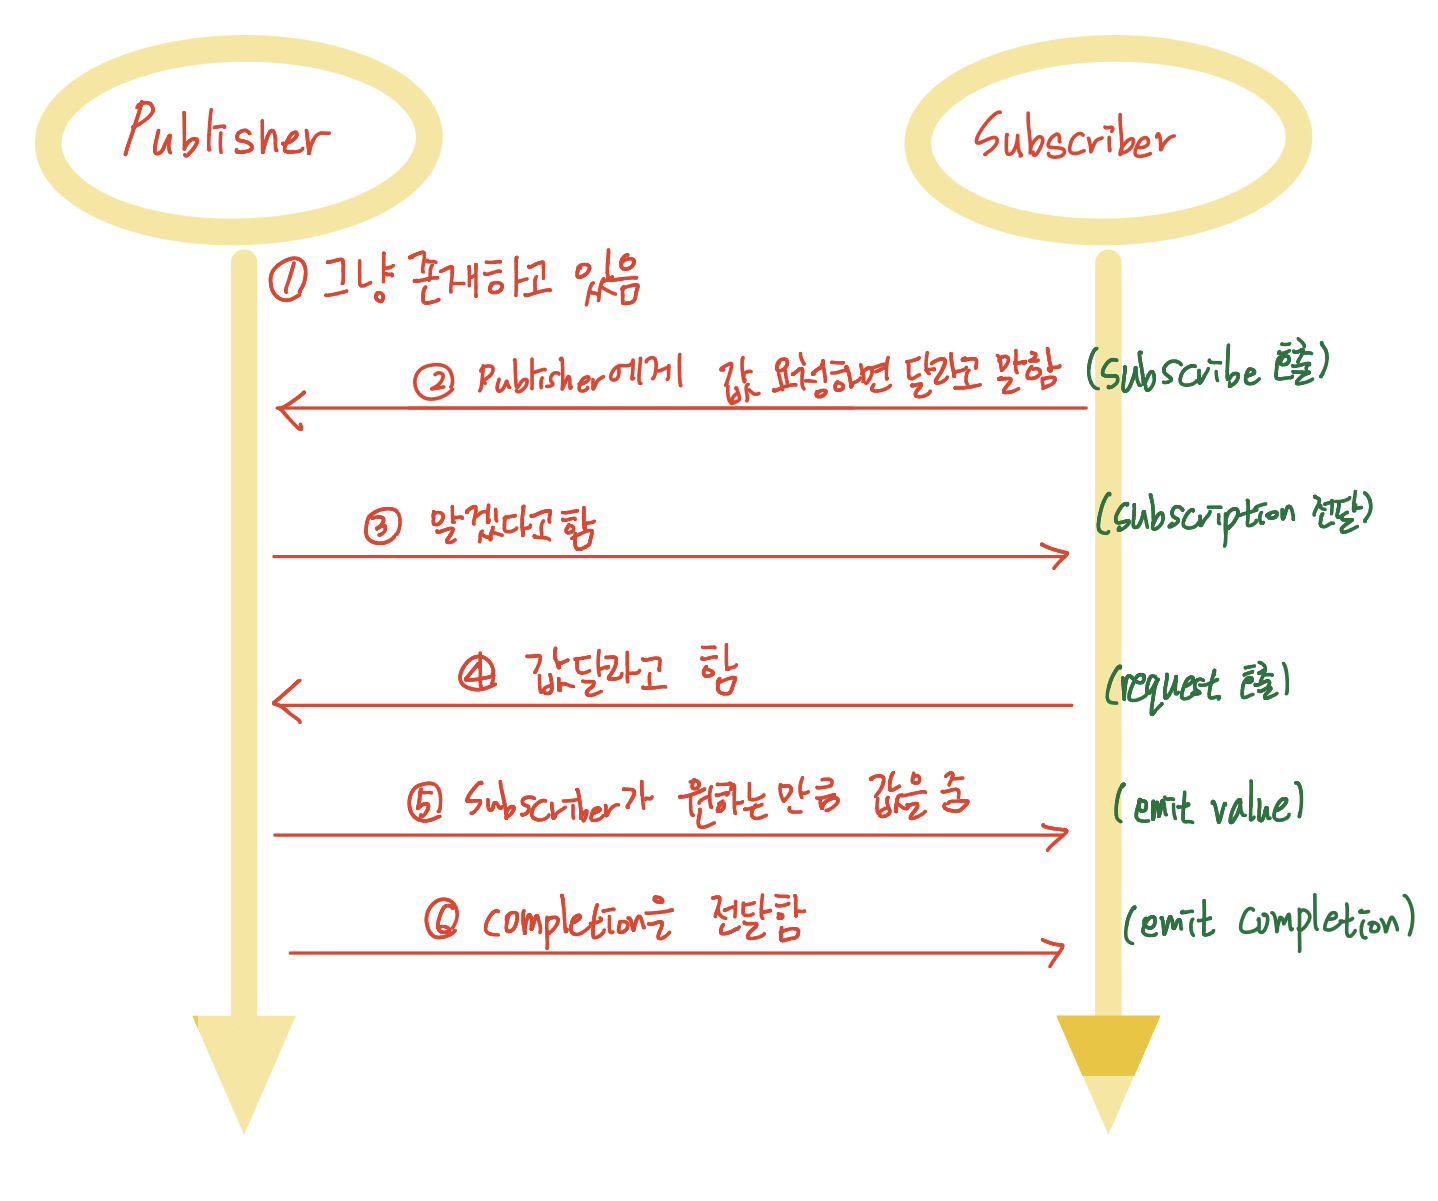 Publisher
Subscriber
① 그냥 존재하고 있음
② Publisher에게 값 요청하면 달라고 말함 (subscribe 호출)
③ 알겠다고 함 (subscription 전달)
④ 값달라고 함 (request 호출)
⑤ Subscriber가 원하는 만큼 값을 줌 (emit value)
⑥ completion을 전달함 (emit completion)